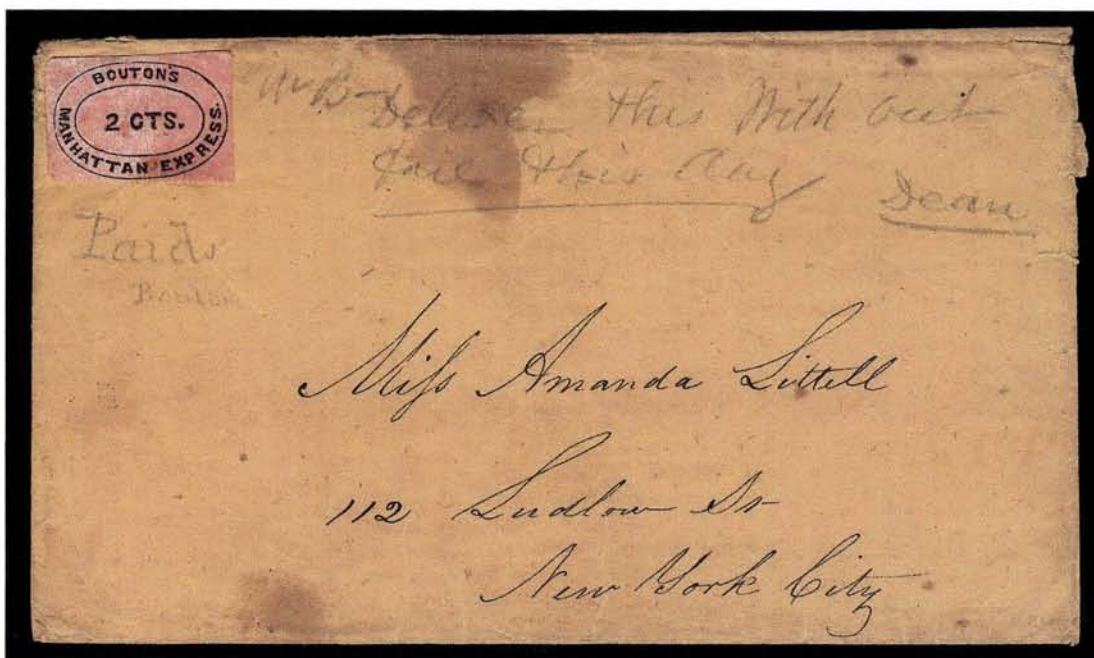 BOUTON'S
2 CTS.
MANHATTAN EXPRESS.
Mr B- Deliver this With out
fail this day Dean
Paid
Bouton
Miss Amanda Littell
112 Ludlow St
New York City